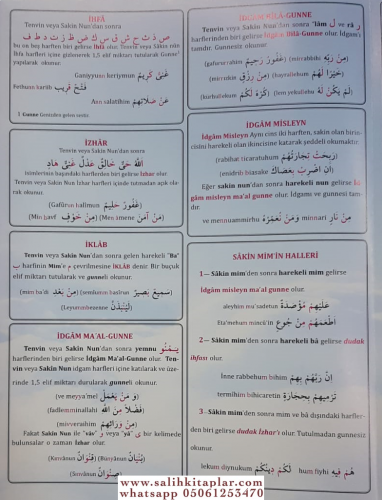 İHFÂ
Tenvin veya Sakin Nun'dan sonra
ت ث ج د ذ ز س ش ص ض ط ظ ف ق ك
bu on beş harften biri gelirse İhfâ olur. Tenvin veya Sâkin nûn
ihfâ harfleri içine gizlenerek 1,5 elif miktarı tutularak Gunne¹
yapılarak okunur.
Ganiyyun: keriymun غَنِيٌّ كَرِيمٌ
Fethunn: karîb فَتْحٌ قَرِيبٌ
Aen salatihim عَنْ صَلَاتِهِمْ
1 Gunne Genizden gelen sestir.
İZHÂR
Tenvin veya Sakin Nun'dan sonra
اَللّٰهُ حَيٌّ خَالِقٌ عَدْلٌ غَنِيٌّ هَادٍ
isimlerinin başındaki harflerden biri gelirse İzhar olur.
Tenvin veya Sakin Nun İzhar harfleri içinde tutmadan açık ola-
rak okunur.
(Gafurun halimun) (غَفُورٌ حَلِيمٌ)
(Min havf) (مِنْ خَوْفٍ) (Men âmene) (مَنْ آمَنَ)
İKLÂB
Tenvin veya Sakin Nun'dan sonra harekeli "Ba"
ب harfinin Mim'e م çevrilmesine İKLÂB denir. Bir buçuk
elif miktarı tutularak ve gunneli okunur.
(min ba'di) (مِنْ بَعْدِ) (semîunm basîrun) (سَمِيعٌ بَصِيرٌ)
(Leyunmbezenne) (لَيُنْبَذَنَّ)
İDGÂM MA'AL-GUNNE
Tenvin veya Sakin Nun'dan sonra yemnu يَمْنُو
harflerinden biri gelirse İdgâm Ma'al-Gunne olur. Ten-
vin veya Sakin Nun idgam harfleri içine katılarak ve üze-
rinde 1,5 elif miktarı durularak gunneli okunur.
(ve meyya'mel) (وَ مَنْ يَعْمَلْ)
(fadlemminallahi) (فَضْلًا مِنَ اللّٰهِ)
(mivverahim) (مِنْ وَرَائِهِمْ)
Fakat Sakin Nun ile "vâv" و veya "yâ" ي bir kelimede
bulunsalar o zaman İzhar olur.
(Kınvânun) (قِنْوَانٌ) (Bünyânun) (بُنْيَانٌ)
(Sınvânun) (صِنْوَانٌ)
İDGÂM BİLÂ-GUNNE
Tenvin veya Sakin Nun'dan sonra "lâm ل ve râ ر
harflerinden biri gelirse İdgâm Bilâ-Gunne olur İdgam'ı
tamdır. Gunnesiz okunur.
(gafururrahim) (غَفُورٌ رَحِيمٌ) (mirrabbihi) (مِنْ رَبِّهِ)
(mirrizkın) (مِنْ رِزْقٍ) (hayrallekum) (خَيْرًا لَهُمْ)
(kurhullekum) (كُرْهٌ لَكُمْ) (lem yekullehu) (لَمْ يَكُنْ لَهُ)
İDGÂM MİSLEYN
İdgâm Misleyn Aynı cins iki harften, sakin olan birin-
cisini harekeli olan ikincisine katarak şeddeli okumaktır.
(rabihat ticaratuhum) (رَبِحَتْ تِجَارَتُهُمْ)
(enidrib biasake) (اَنِ اضْرِبْ بِعَصَاكَ)
Eğer sakin nun'dan sonra harekeli nun gelirse İd-
gâm misleyn ma'al gunne olur. İdgamı ve gunnesi tam-
dır.
ve mennuammirhu وَمَنْ نُعَمِّرْهُ minnari مِنْ نَارٍ
SÂKİN MİM'İN HALLERİ
1— Sâkin mim'den sonra harekeli mim gelirse
İdgâm misleyn ma'al gunne olur.
aleyhim mu'sadetun عَلَيْهِمْ مُؤْصَدَةٌ
Eta'mehum mincû'in اَطْعَمَهُمْ مِنْ جُوعٍ
2— Sâkin mim'den sonra harekeli bâ gelirse dudak
ihfası olur.
İnne rabbehum bihim اِنَّ رَبَّهُمْ بِهِمْ
termîhim bihicaretin تَرْمِيهِمْ بِحِجَارَةٍ
3- Sâkin mim'den sonra mim ve bâ dışındaki harfler-
den biri gelirse dudak İzhar'ı olur. Tutulmadan gunnesiz
okunur.
lekum diynukum لَكُمْ دِينُكُمْ hum fiyhi هُمْ فِيهِ
www.salihkitaplar.com
whatsapp 05061253470